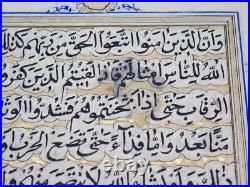 وَاَنَّ الَّذينَ امَنُوا اتَّبَعُوا الْحَقَّ مِنْ رَبِّهِمْ كَذلِكَ
اللّٰهُ لِلنَّاسِ اَمْثالَهُمْ فَاِذا لَقيتُمُ الَّذينَ كَفَرُوا
الرِّقابِ حَتّى اِذا اَثْخَنْتُمُوهُمْ فَشُدُّوا
مَنًّا بَعْدُ وَاِمّا فِداءً حَتّى تَضَعَ الْحَرْبُ
اللّٰهُ لَانْتَصَرَ